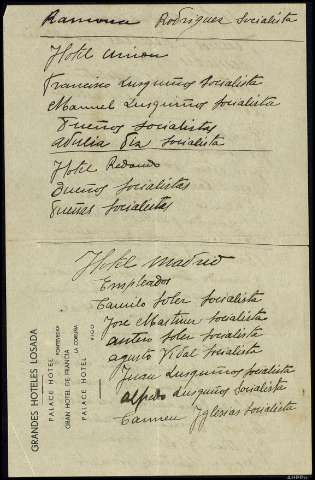 Ramona Rodriguez Socialista
Hotel Union
Francisco Lusquiños Socialista
Manuel Lusquiños Socialista
Dueños Socialistas
Adulia Socialista
Hotel Redondo
Dueños Socialistas
Dueñas Socialistas
Hotel Madrid
Empleados
Camilo Soler Socialista
José Martinez Socialista
Antero Soler Socialista
Agusto Vidal Socialista
Juan Lusquiños Socialista
Alfredo Lusquiños Socialista
Carmen Yglesias Socialista
GRANDES HOTELES LOSADA
PALACE HOTEL
PONTEVEDRA
GRAN HOTEL DE FRANCIA
LA CORUÑA
PALACE HOTEL
VIGO